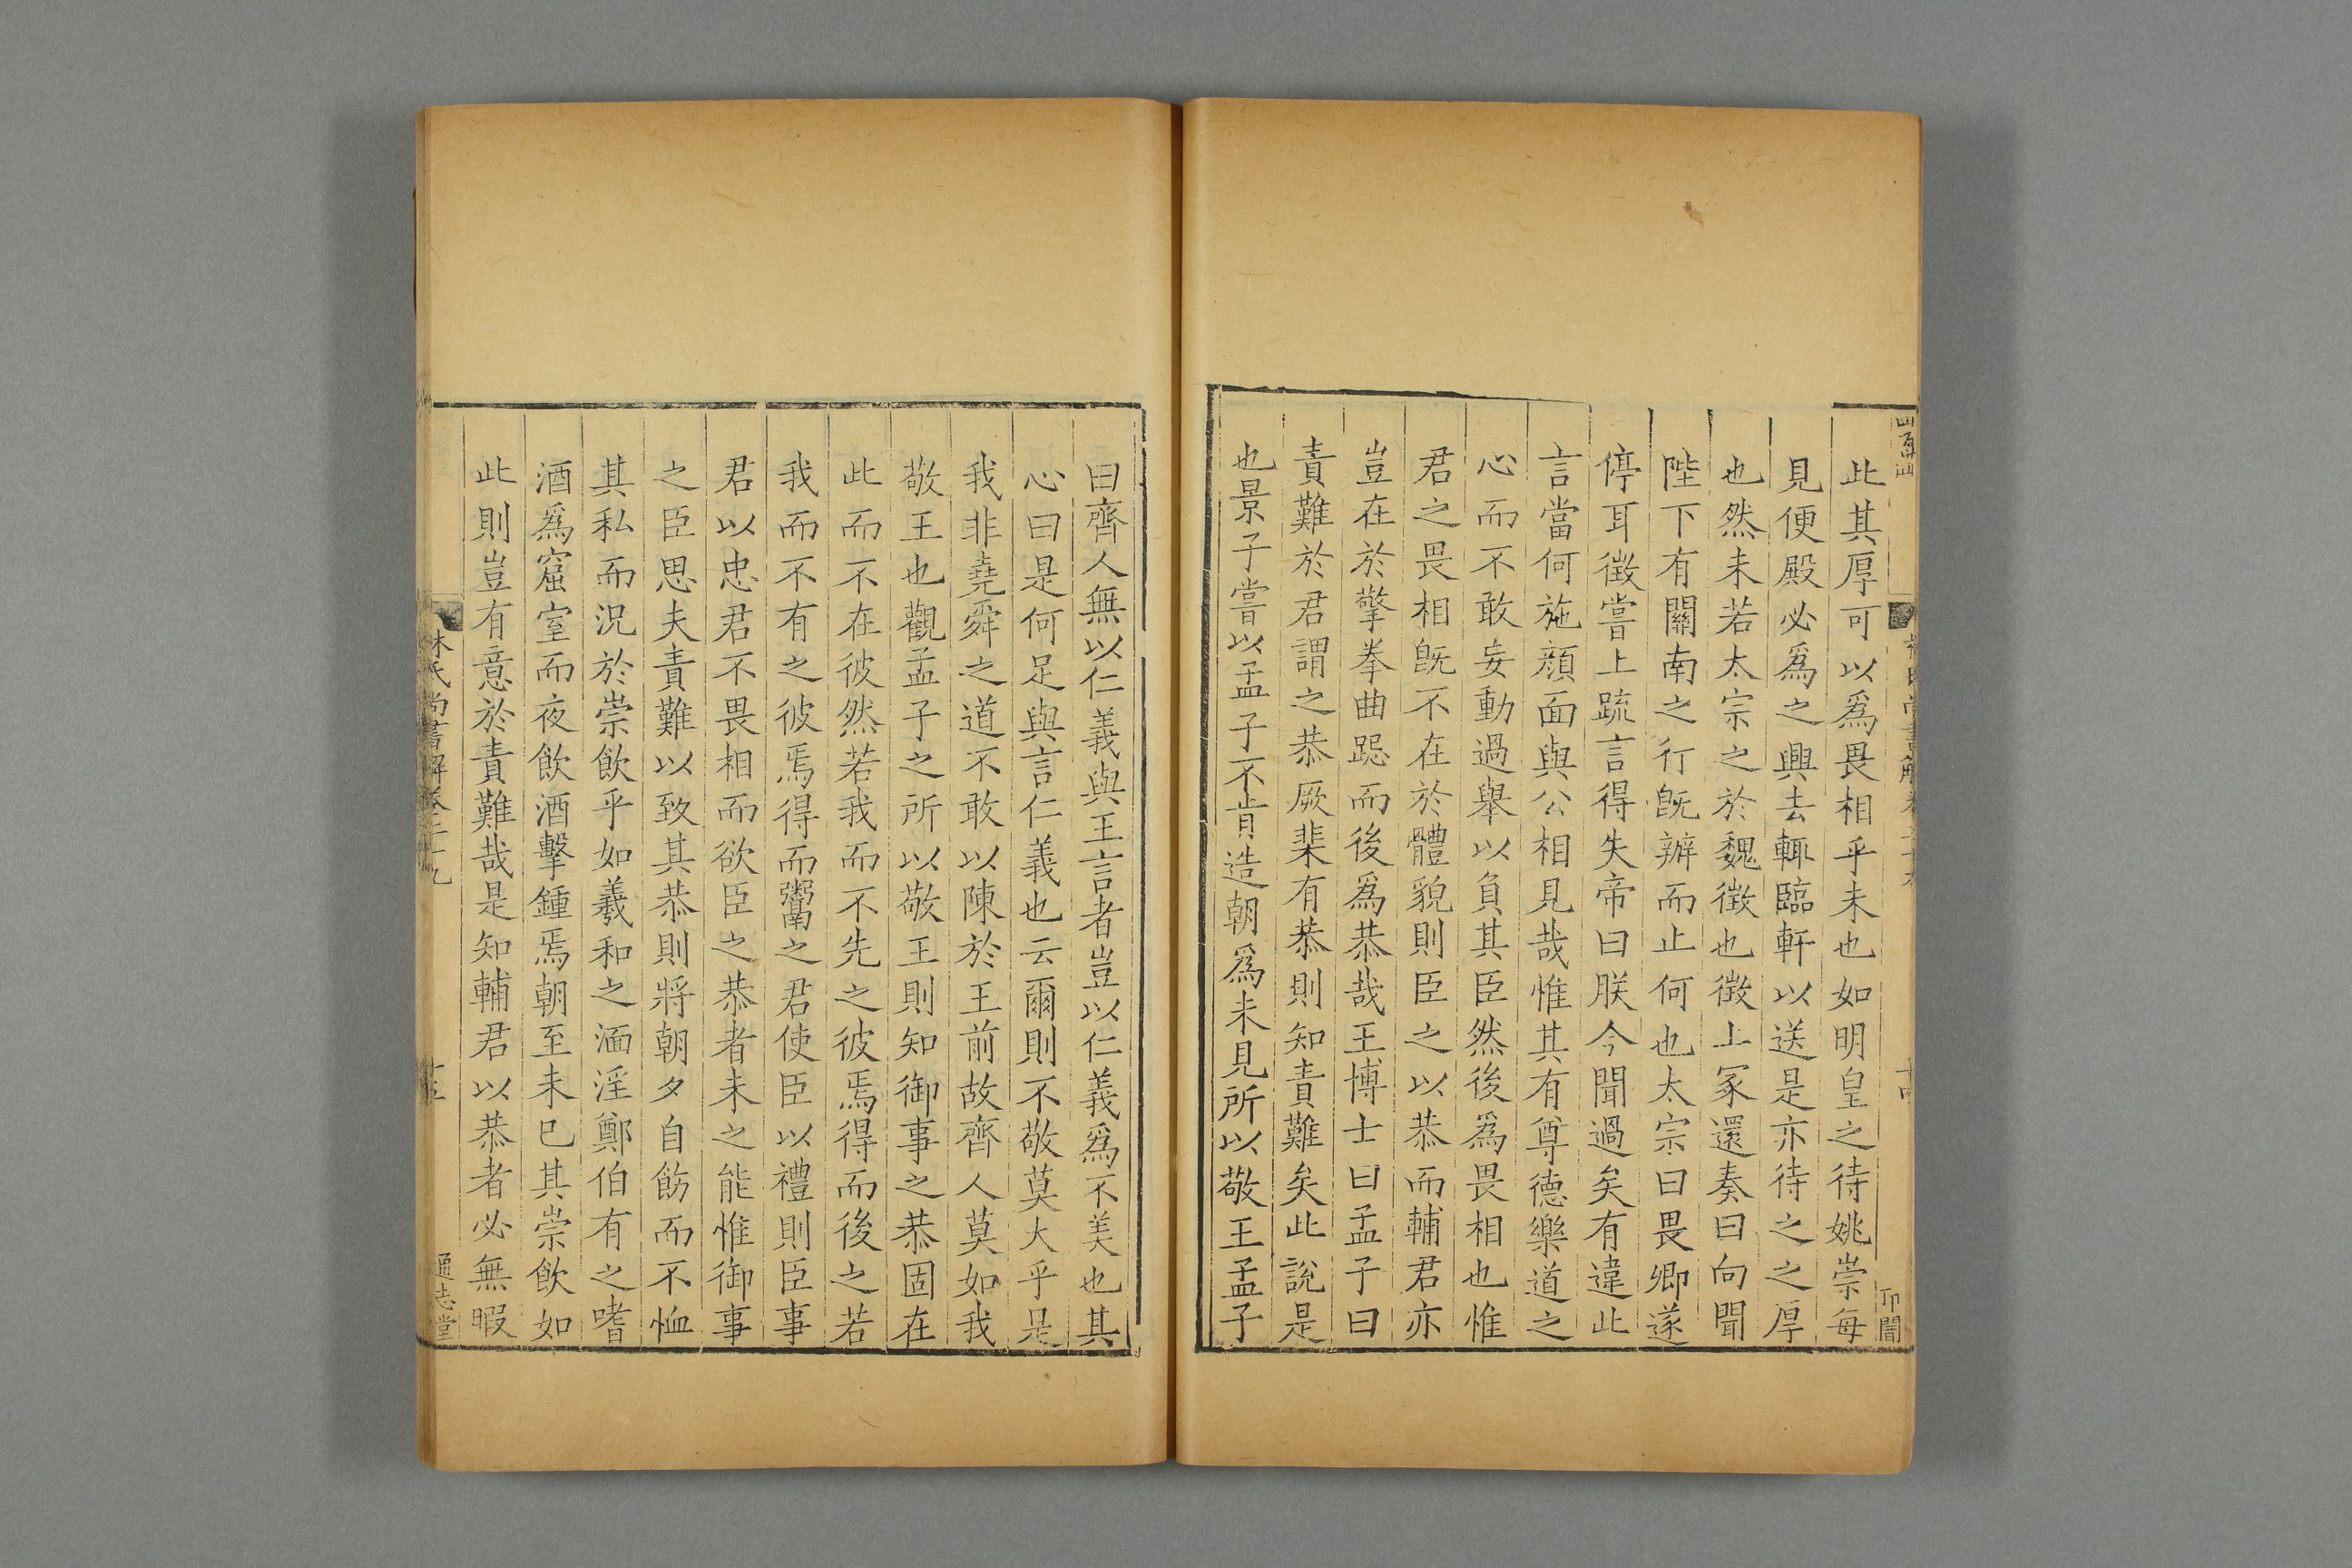 此其厚可以爲畏相乎未也如明皇之待姚崇每
見便殿必爲之興去輙臨軒以送是亦待之之厚
也然未若太宗之於魏徵也徵上冢還奏曰向聞
陛下有關南之行旣辦而止何也太宗曰畏卿遂
停耳徵嘗上疏言得失帝曰朕今聞過矣有違此
言當何施顔面與公相見哉惟其有尊德樂道之
心而不敢妄動過舉以負其臣然後爲畏相也惟
君之畏相旣不在於體貌則臣之以恭而輔君亦
豈在於擎拳曲跽而後爲恭哉王博士曰孟子曰
責難於君謂之恭厥棐有恭則知責難矣此說是
也景子嘗以孟子不肯造朝爲未見所以敬王孟子
曰齊人無以仁義與王言者豈以仁義爲不美也其
心曰是何足與言仁義也云爾則不敬莫大乎是
我非堯舜之道不敢以陳於王前故齊人莫如我
敬王也觀孟子之所以敬王則知御事之恭固在
此而不在彼然若我而不先之彼焉得而後之若
我而不有之彼焉得而鬻之君使臣以禮則臣事
君以忠君不畏相而欲臣之恭者未之能惟御事
之臣思夫責難以致其恭則將朝夕自飭而不恤
其私而況於崇飲乎如羲和之湎淫鄭伯有之嗜
酒爲窟室而夜飲酒擊鍾焉朝至未已其崇飲如
此則豈有意於責難哉是知輔君以恭者必無暇
林氏尚書解卷二十九
十五
通志堂